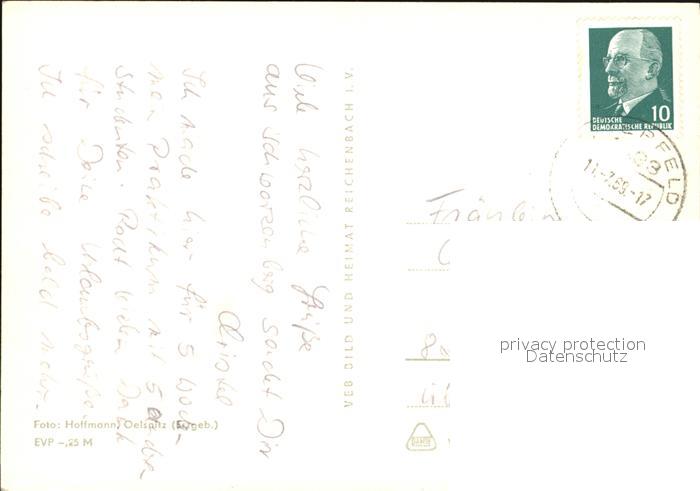 Viele herzliche Grüße
aus Schwarzenberg sendet Dir
Christel
Ich mache hier für 5 Wochen
mein Praktikum mit 5 andern
Studenten. Recht vielen Dank
für Deine Urlaubsgrüße.
Ich schreibe bald mehr.
Foto: Hoffmann, Oelsnitz (Erzgeb.)
EVP –,25 M
VEB BILD UND HEIMAT REICHENBACH I. V.
10
DEUTSCHE
DEMOKRATISCHE REPUBLIK
Fräulein
privacy protection
Datenschutz